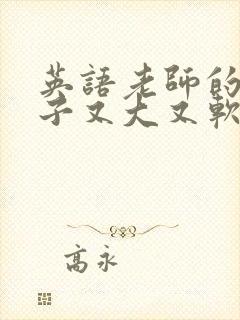 英語老師的
子又大又軟
高永